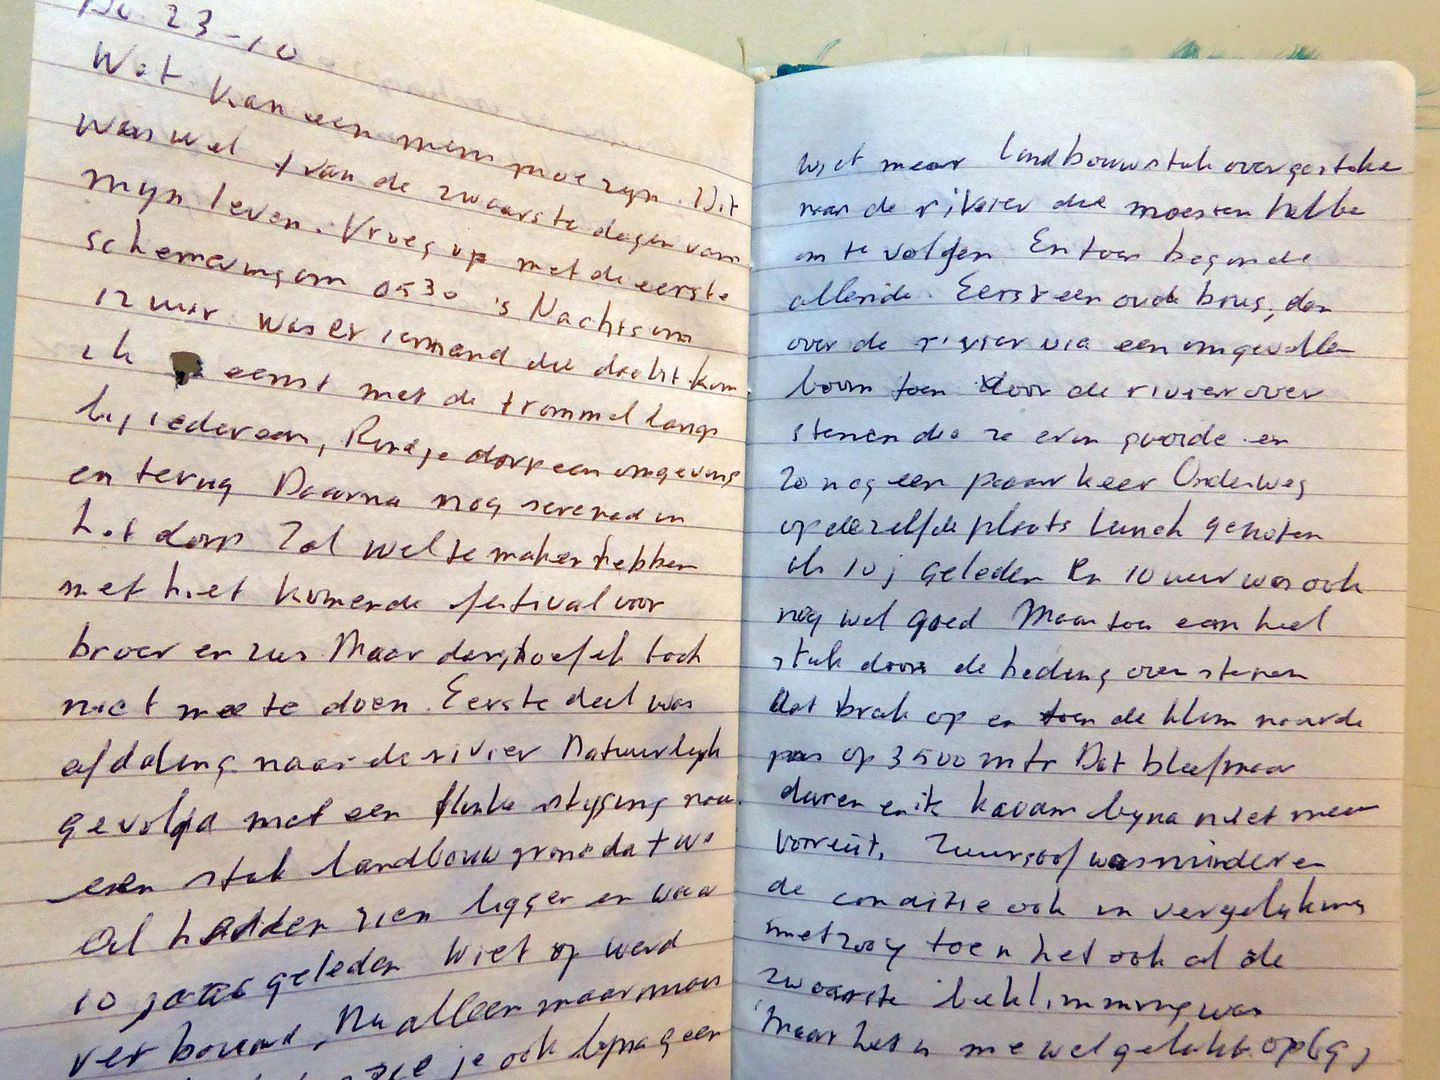 Do 23-10
Wat kan een mens moe zijn. Dit
was wel 1 van de zwaarste dagen van
mijn leven. Vroeg op met de eerste
schemering om 0530 's Nachts om
12 uur was er iemand die dacht kom
ik eens met de trommel langs
bij iedereen, Rondje dorp een omgeving
en terug Daarna nog serenade in
het dorp Zal wel te maken hebben
met het komende festival voor
broer en zus Maar daar hoef ik toch
niet mee te doen. Eerste deel was
afdaling naar de rivier Natuurlijk
gevolgd met een flinke stijging naar
een stuk landbouwgrond dat we
al hadden zien liggen en waar
10 jaar geleden wiet op werd
verbouwd, Nu alleen maar mais
je ook bijna geen
wiet meer landbouwstuk overgestoken
naar de rivier die moesten hebbe
om te volgen. En toen begon de
ellende. Eerst een oude brug, dan
over de rivier via een omgevallen
boom toen door de rivier over
stenen die ze erin gooide en
zo nog een paar keer Onderweg
op dezelfde plaats lunch genoten
als 10 j geleden En 10 uur was ook
nog wel goed Maar toen een heel
stuk door de bedding over stenen
Dat brak op en toen de klim naar de
pas op 3500 mtr Dat bleef maar
duren en ik kwam bijna niet meer
vooruit. Zuurstof was minder en
de conditie ook in vergelijking
met 2004 toen het ook al de
zwaarste beklimming was
Maar het is me wel gelukt op